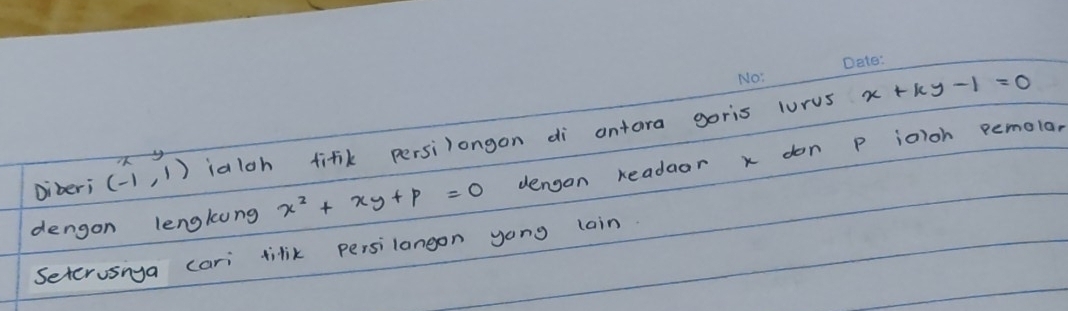 No: Date:
x y
Diberi (-1, 1) ialah titik persilangan di antara garis lurus x + ky - 1 = 0
dengan lengkung x² + xy + p = 0 dengan keadaan x dan p ialah pemalar
Seterusnya cari titik persilangan yang lain.